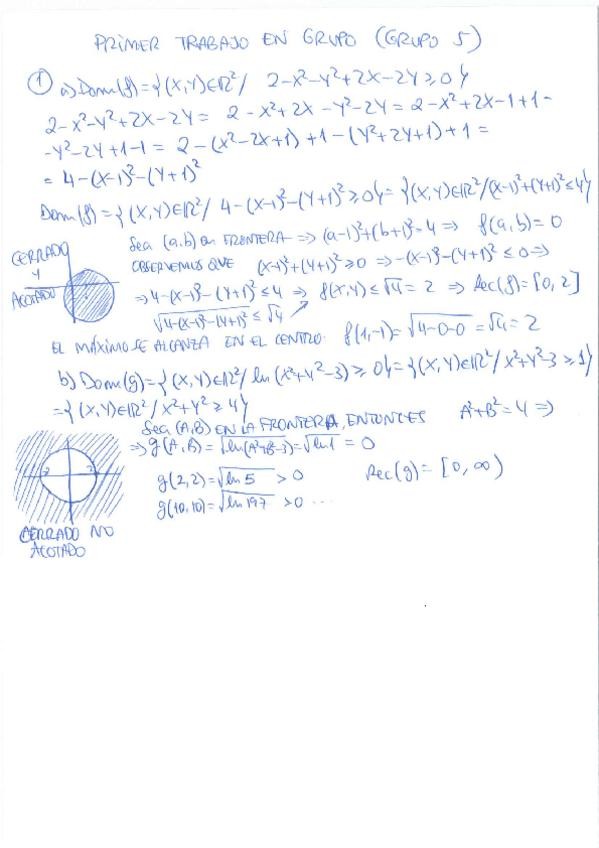 PRIMER TRABAJO EN GRUPO (GRUPO 5)
① a) Dom(f) = {(x,y)∈ℝ² / 2-x²-y²+2x-2y ≥ 0}
2-x²-y²+2x-2y = 2-x²+2x-y²-2y = 2-x²+2x-1+1-
-y²-2y+1-1 = 2-(x²-2x+1)+1-(y²+2y+1)+1 =
= 4-(x-1)²-(y+1)²
Dom(f) = {(x,y)∈ℝ² / 4-(x-1)²-(y+1)² ≥ 0} = {(x,y)∈ℝ² / (x-1)²+(y+1)² ≤ 4}
CERRADO
Y
ACOTADO
Sea (a,b) en FRONTERA ⇒ (a-1)²+(b+1)² = 4 ⇒ f(a,b) = 0
OBSERVEMOS QUE (x-1)²+(y+1)² ≥ 0 ⇒ -(x-1)²-(y+1)² ≤ 0 ⇒
⇒ 4-(x-1)²-(y+1)² ≤ 4 ⇒ f(x,y) ≤ √4 = 2 ⇒ Rec(f) = [0,2]
√(4-(x-1)²-(y+1)²) ≤ √4
EL MÁXIMO SE ALCANZA EN EL CENTRO: f(1,-1) = √(4-0-0) = √4 = 2
b) Dom(g) = {(x,y)∈ℝ² / ln(x²+y²-3) ≥ 0} = {(x,y)∈ℝ² / x²+y²-3 ≥ 1}
= {(x,y)∈ℝ² / x²+y² ≥ 4}
Sea (A,B) EN LA FRONTERA, ENTONCES A²+B² = 4 ⇒
⇒ g(A,B) = √(ln(A²+B²-3)) = √(ln 1) = 0
g(2,2) = √(ln 5) > 0
Rec(g) = [0,∞)
g(10,10) = √(ln 197) > 0 ...
2 2
CERRADO NO
ACOTADO